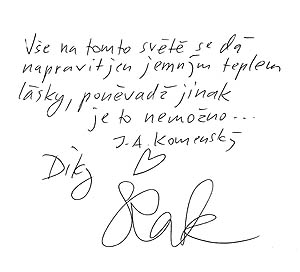 Vše na tomto světě se dá
napravit jen jemným teplem
lásky, poněvadž jinak
je to nemožno...
J.A. Komenský
Díky